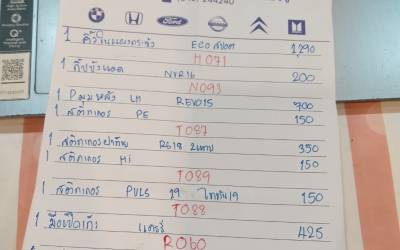 Ford
1 คิ้วในแผงกระจัง ECO สปอต 1,290
H071
1 กิ๊ปบังแดด NYR16 200
N093
1 Pมมหลัง LH REVO15 900
1 สติกเกอร์ PE 150
T087
1 สติกเกอร์ฝาท้าย RS18 2แถบ 350
1 สติกเกอร์ Hi 150
T089
1 สติกเกอร์ PULS 19 ไททัน19 150
T088
1 มือเปิดเก๊ะ แตรร์ 425
R060